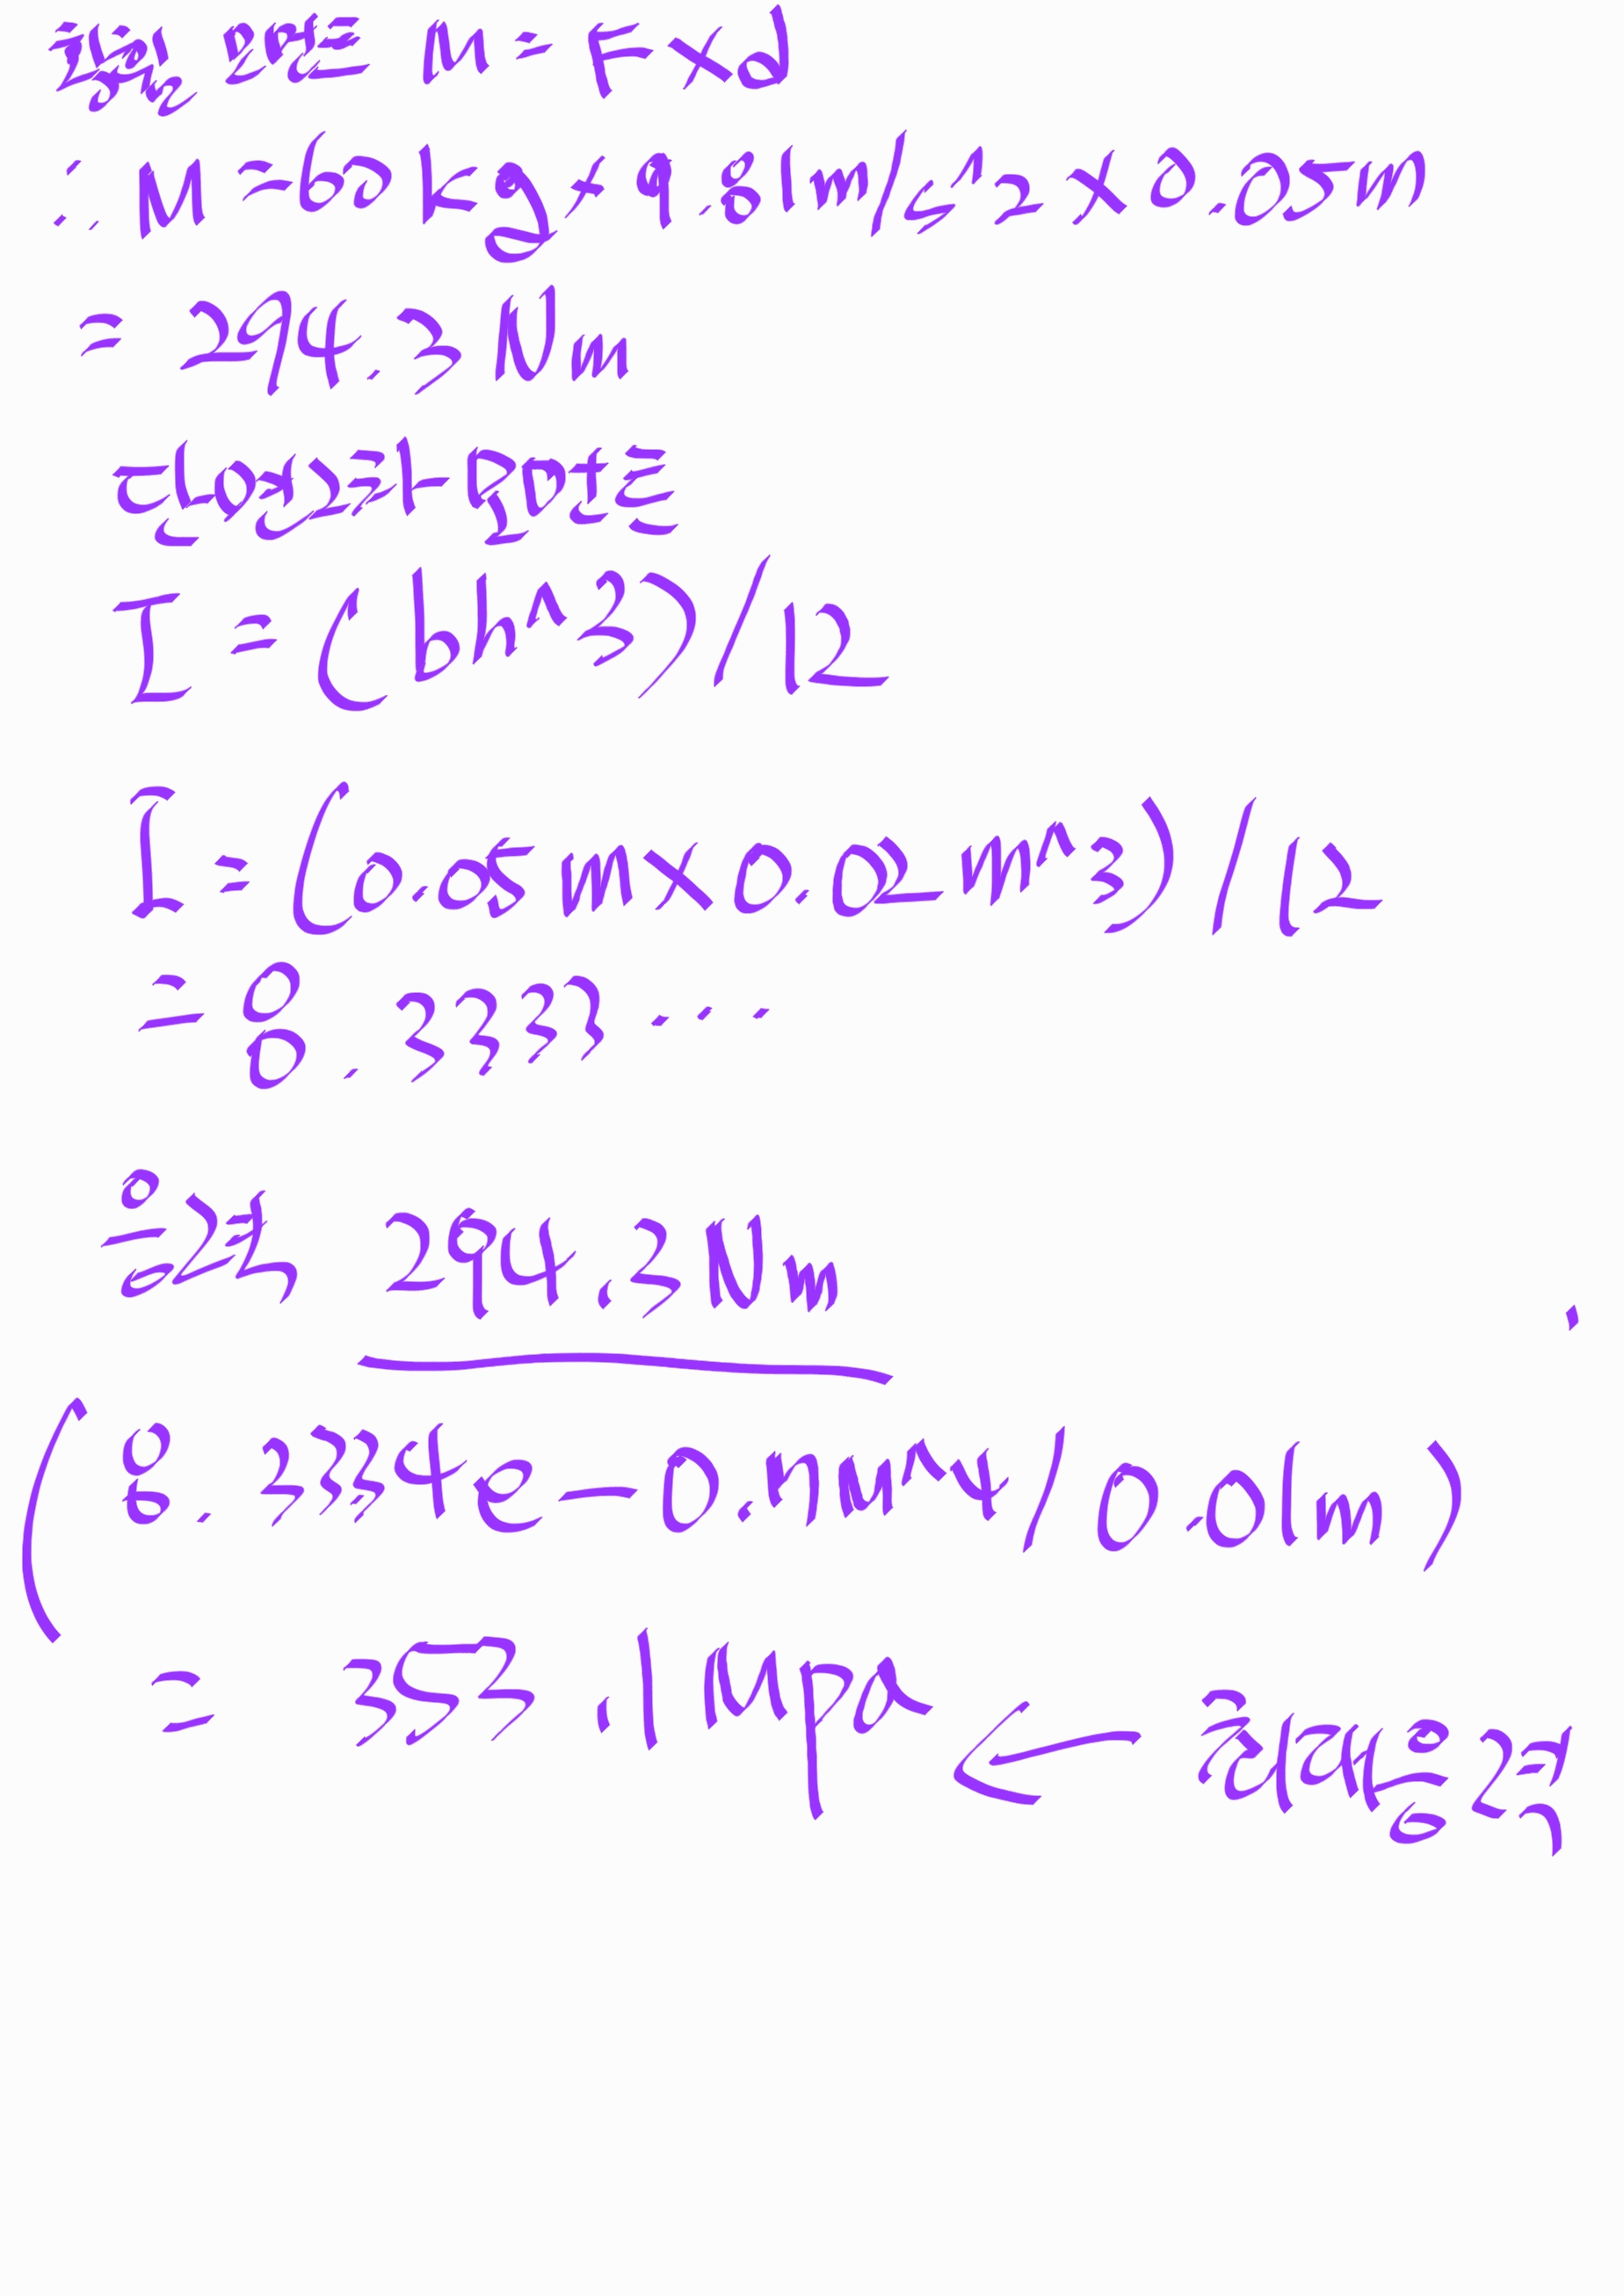 힘의 모멘트 M = F×d
∴ M = 60kg × 9.81m/s^2 × 0.05m
= 294.3 Nm
단면의 관성모멘트
I = (bh^3)/12
I = (0.05m×0.02m^3)/12
= 8.3333...
응력 294.3Nm
(8.3334e-0.mm^4/0.01m)
= 353.1 Mpa ← 허용응력